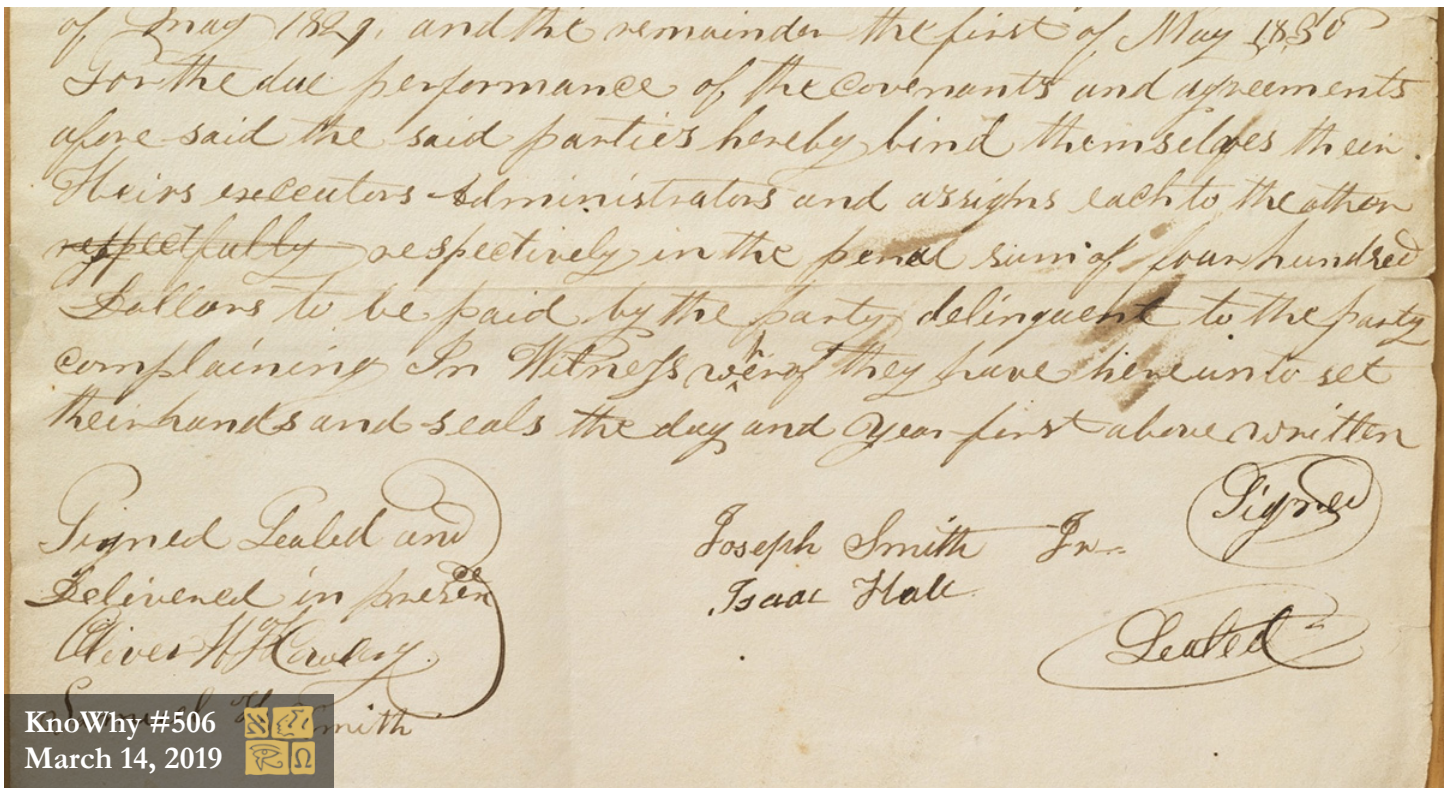 of May 1829, and the remainder the first of May 1830
For the due performance of the covenants and agreements
afore said the said parties hereby bind themselves their
Heirs executors Administrators and assigns each to the other
respectfully respectively in the penal sum of four hundred
Dollars to be paid by the party delinquent to the party
complaining In Witness wherof they have hereunto set
their hands and seals the day and year first above written
Signed Sealed and
Delivered in presence
of
Oliver H Cowdery
Samuel H Smith
Joseph Smith Jr
Isaac Hale
Signed
Sealed
KnoWhy #506
March 14, 2019